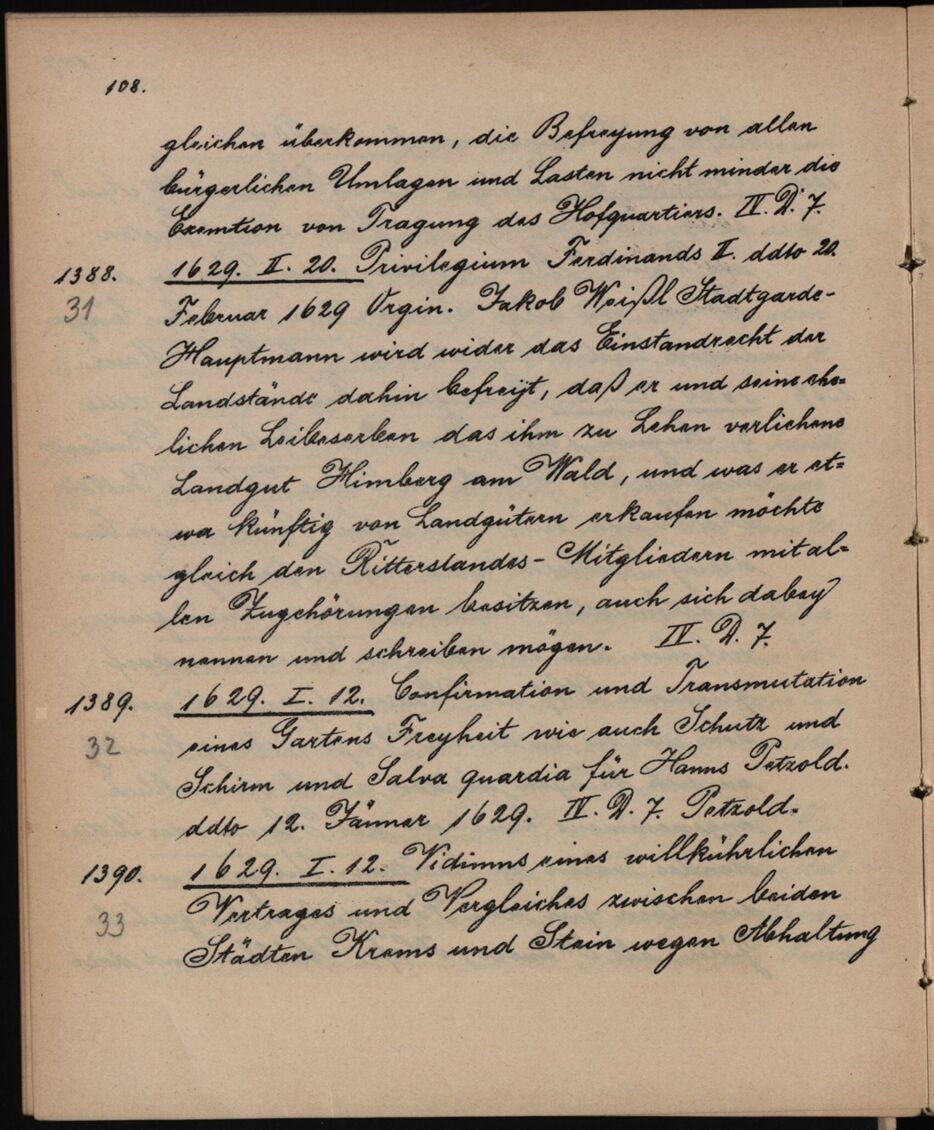 108.
gleichen überkommen, die Befreyung von allen
bürgerlichen Umlagen und Lasten nicht minder die
Exemtion von Tragung des Hofquartiers. IV. D. 7.
1388. 1629. II. 20. Privilegium Ferdinands II. ddto 20.
31 Februar 1629 Orgin. Jakob Weißl Stadtgarde-
Hauptmann wird wider das Einstandrecht der
Landstände dahin befreÿt, daß er und seine ehe=
lichen Leibeserben das ihm zu Lehen verliehene
Landgut Himberg am Wald, und was er et=
wa künftig von Landgütern erkaufen möchte
gleich den Ritterstandes-Mitgliedern mit al=
len Zugehörungen besitzen, auch sich dabey
nennen und schreiben mögen. IV. D. 7.
1389. 1629. I. 12. Confirmation und Transmutation
32 eines Gartens Freyheit wie auch Schutz und
Schirm und Salva quardia für Hanns Petzold.
ddto 12. Jänner 1629. IV. D. 7. Petzold.
1390. 1629. I. 12. Vidimus eines willkührlichen
33 Vertrages und Vergleiches zwischen beiden
Städten Krems und Stein wegen Abhaltung